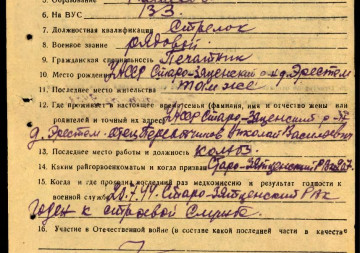 6. На ВУС 133
7. Должностная квалификация Стрелок
8. Военное звание рядовой
9. Гражданская специальность Печатник
10. Место рождения УАССР Старо-Зятцинский р-н д.
11. Последнее место жительства Там же
12. Где проживает в настоящее время семья (фамилия, имя и отчество жены или
родителей и точный их адрес) УАССР Старо-Зятцинский р-н
д. отец Николай Васильевич
13. Последнее место работы и должность колхоз
14. Каким райгорвоенкоматом и когда призван Старо-Зятцинский РВК
15. Когда и где прошел последний раз медкомиссию и результат годности к
военной службе Старо-Зятцинский РВК
годен к строевой службе
16. Участие в Отечественной войне (в составе какой последней части в качестве